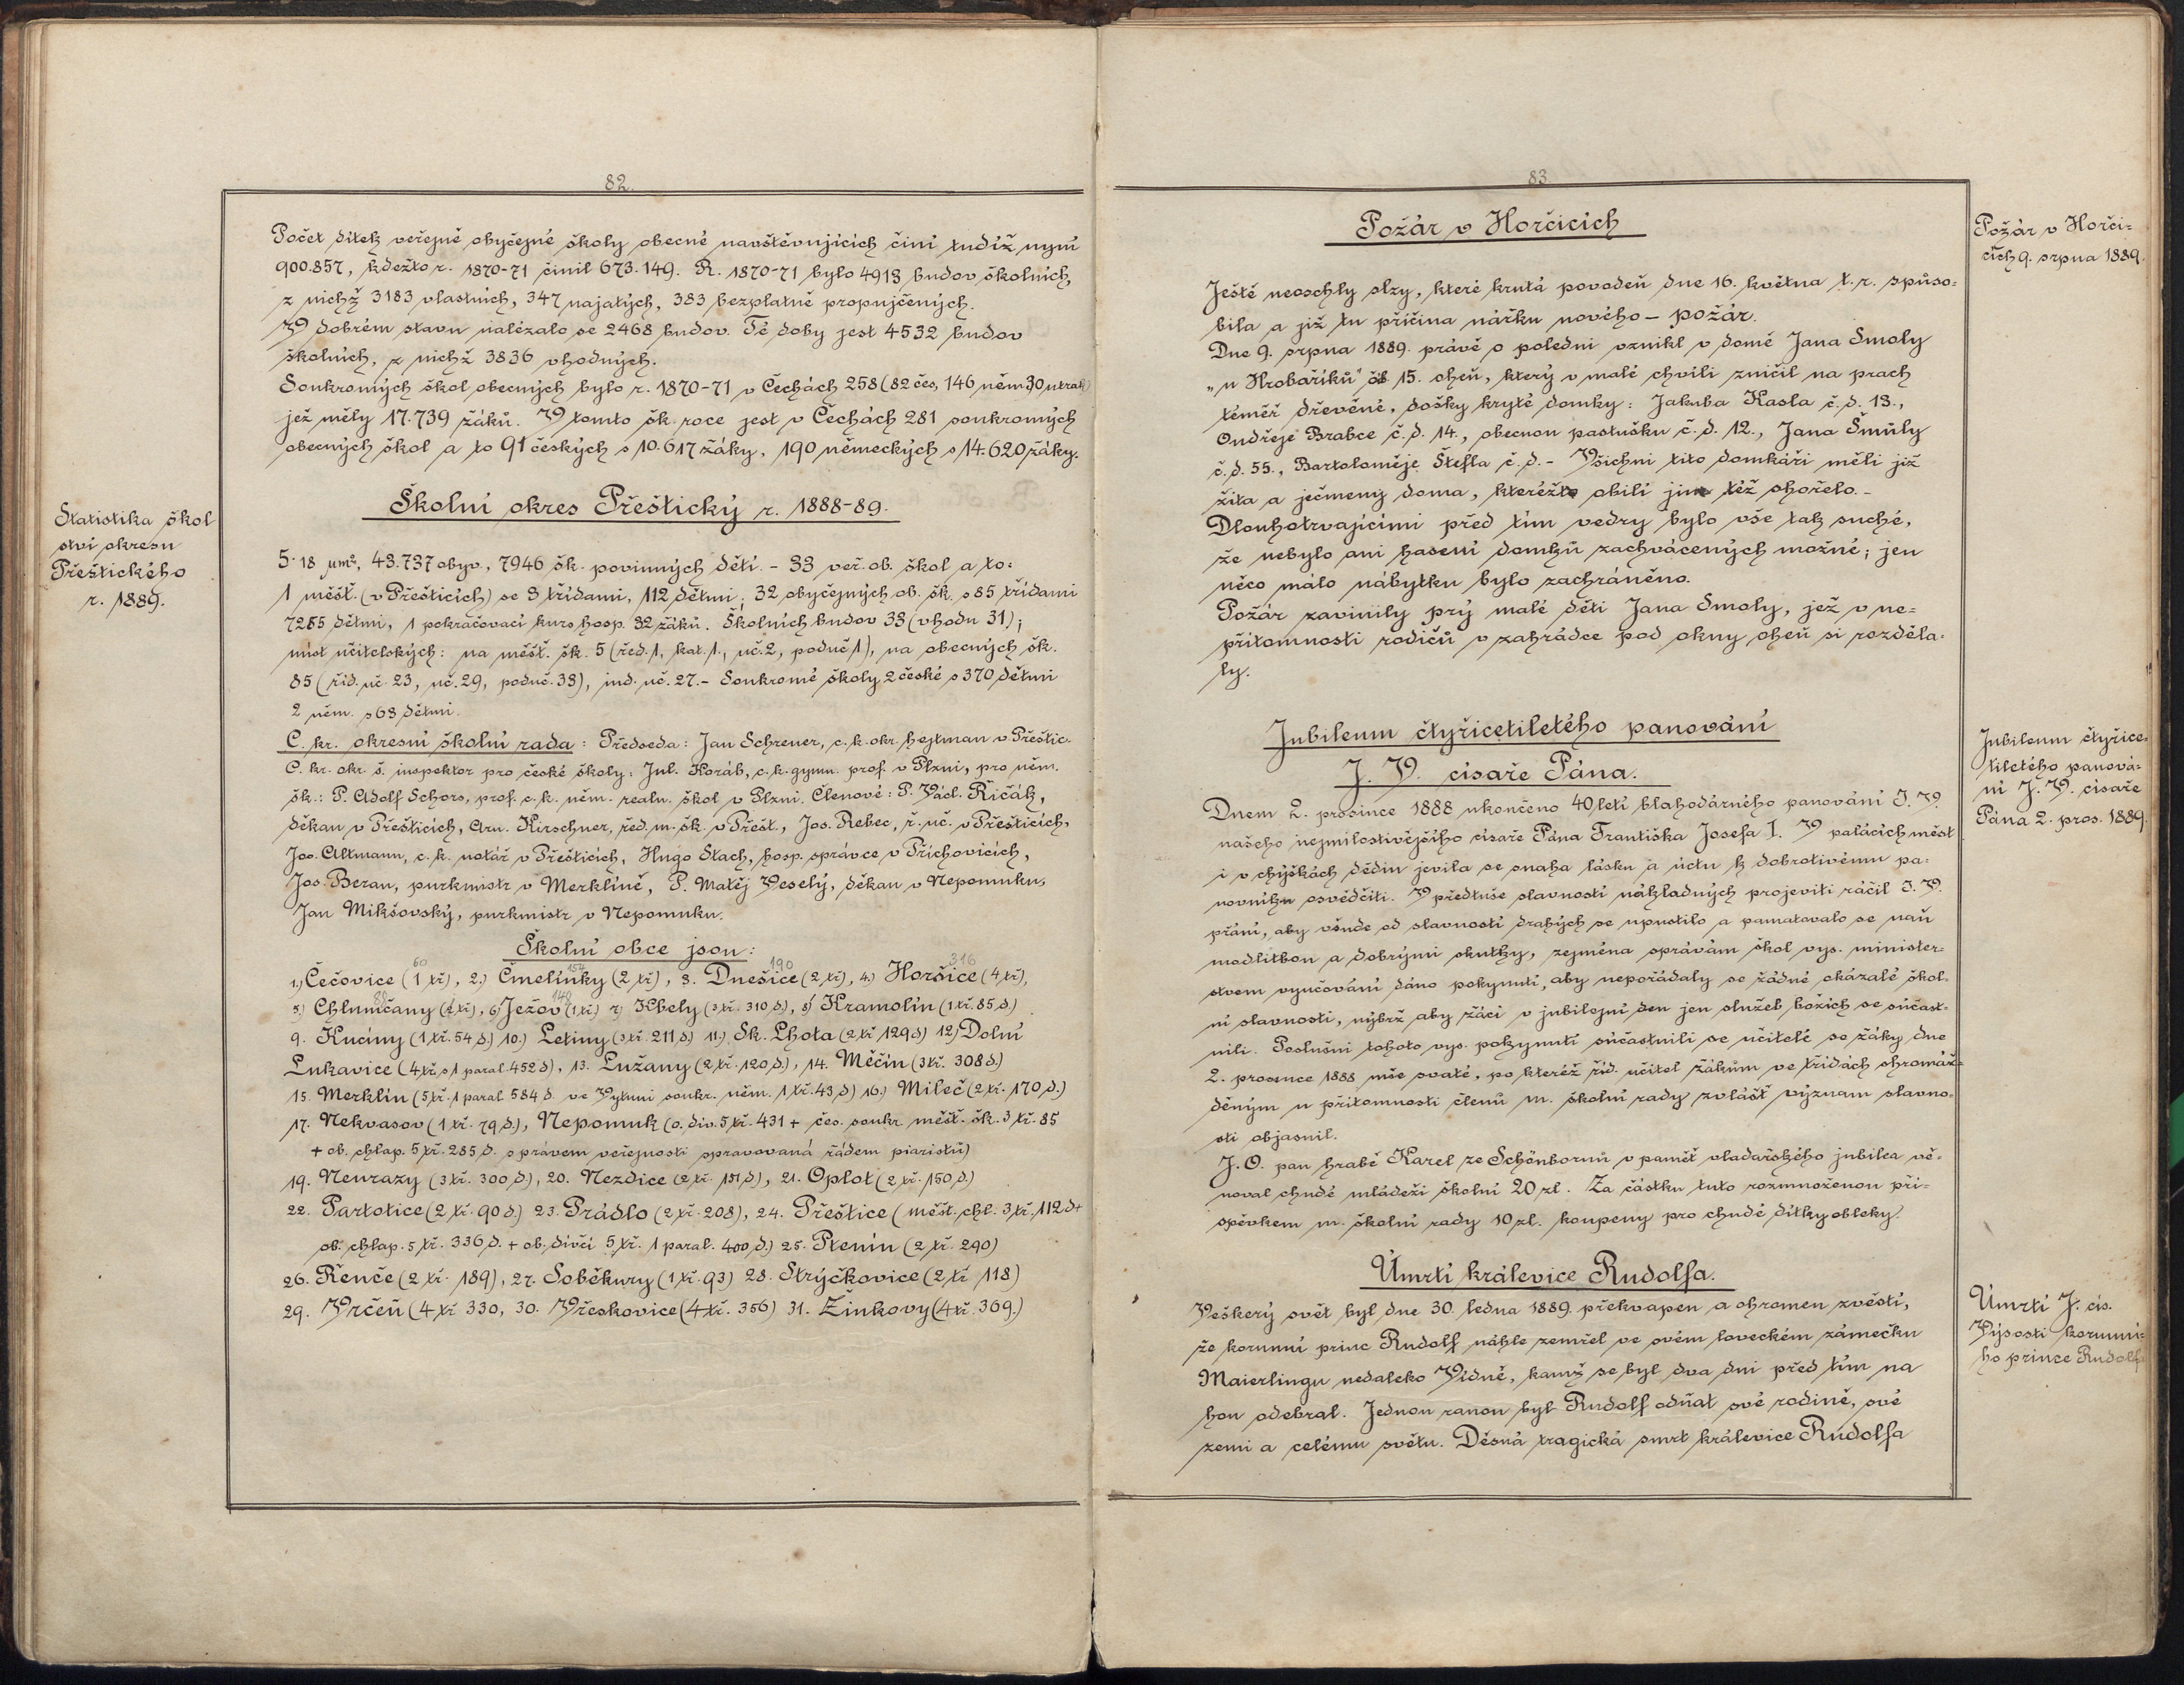 82.
Počet dítek veřejné obyčejné školy obecné navštěvujících činí tudíž nyní
900.857, kdežto r. 1870-71 činil 673.149. R. 1870-71 bylo 4913 budov školních,
z nichž 3183 vlastních, 347 najatých, 383 bezplatně propujčených.
V dobrém stavu nalézalo se 2468 budov. Té doby jest 4532 budov
školních, z nichž 3836 vhodných.
Soukromých škol obecných bylo r. 1870-71 v Čechách 258 (82 čes, 146 něm. 30 utrak)
jež měly 17.739 žáků. V tomto šk. roce jest v Čechách 281 soukromých
obecných škol a to 91 českých s 10.617 žáky, 190 německých s 14.620 žáky.
Školní okres Přeštický r. 1888-89.
Statistika škol
ství okresu
Přeštického
r. 1889.
5·18 µm², 43.737 obyv., 7946 šk. povinných dětí. - 33 veř. ob. škol a to:
1 měšť. (v Přešticích) se 3 třídami, 112 dětmi; 32 obyčejných ob. šk. s 85 třídami
7285 dětmi, 1 pokračovací kurs hosp. 32 žáků. Školních budov 33 (vhodn 31);
míst učitelských: na měšť. šk. 5 (řed. 1, kat. 1., uč. 2, poduč 1), na obecných šk.
85 (říd. uč. 23, uč. 29, poduč. 33), ind. uč. 27.- Soukromé školy 2 české s 370 dětmi
2 něm. s 68 dětmi.
C. kr. okresní školní rada: Předseda: Jan Schreuer, c. k. okr. hejtman v Přeštic.
C. kr. okr. š. inspektor pro české školy: Jul. Koráb, c. k. gymn. prof. v Plzni, pro něm.
šk.: P. Adolf Schors, prof. c. k. něm. realn. škol v Plzni. Členové: P. Václ. Řičák,
děkan v Přešticích, Arn. Kirschner, řed. m. šk. v Přešt., Jos. Rebec, ř. uč. v Přešticích,
Jos. Altmann, c. k. notář v Přešticích, Hugo Stach, hosp. správce v Příchovicích,
Jos. Beran, purkmistr v Merklíně, P. Matěj Veselý, děkan v Nepomuku,
Jan Mikšovský, purkmistr v Nepomuku.
Školní obce jsou:
60 154 190 316
1.) Čečovice (1 tř), 2.) Čmelínky (2 tř), 3. Dnešice (2 tř), 4.) Horšice (4 tř),
88 148
5.) Chlumčany (2 tř), 6) Ježov (1 tř) 7) Kbely (3 tř. 310 d), 8) Kramolín (1 tř. 85 d.)
9. Kucíny (1 tř. 54 d.) 10.) Letiny (3 tř. 211 d.) 11.) Sk. Lhota (2 tř 129 d) 12.) Dolní
Lukavice (4 tř s 1 paral. 452 d), 13. Lužany (2 tř. 120 d.), 14. Měčín (3 tř. 308 d.)
15. Merklín (5 tř. 1 paral 584 d. ve Vytuni soukr. něm. 1 tř. 43 d) 16.) Mileč (2 tř. 170 d.)
17. Nekvasov (1 tř. 79 d.), Nepomuk (o. dív. 5 tř. 431 + čes. soukr. měšť. šk. 3 tř. 85
+ ob. chlap. 5 tř. 285 d. s právem veřejnosti spravovaná řádem piaristů)
19. Neurazy (3 tř. 300 d), 20. Nezdice (2 tř. 151 d), 21. Oplot (2 tř. 150 d.)
22. Partotice (2 tř. 90 d.) 23. Prádlo (2 tř. 208), 24. Přeštice (měšť. chl. 3 tř. 112 d +
ob. chlap. 5 tř. 336 d. + ob. dívčí 5 tř. 1 paral. 400 d.) 25. Ptenín (2 tř. 290)
26. Řenče (2 tř. 189), 27. Soběkury (1 tř. 93) 28. Strýčkovice (2 tř 118)
29. Vrčeň (4 tř 330, 30. Vřeskovice (4 tř. 356) 31. Žinkovy (4 tř. 369.)
83.
Požár v Horčicích
Požár v Horči=
cích 9. srpna 1889.
Ještě neoschly slzy, které krutá povodeň dne 16. května t. r. spůso=
bila a již tu příčina nářku nového - požár.
Dne 9. srpna 1889. právě o poledni vznikl v domě Jana Smoly
„u Hrobaříků" čís 15. oheň, který v malé chvíli zničil na prach
téměř dřevěné, došky kryté domky: Jakuba Kasla č. d. 13.,
Ondřeje Brabce č. d. 14., obecnou pastušku č. d. 12., Jana Šmůly
č. d. 55., Bartoloměje Štefla č. d. - Všichni tito domkáři měli již
žita a ječmeny doma, kteréžto obilí jim též shořelo.-
Dlouhotrvajícími před tím vedry bylo vše tak suché,
že nebylo ani hasení domků zachvácených možné; jen
něco málo nábytku bylo zachráněno.
Požár zavinily prý malé děti Jana Smoly, jež v ne=
přítomnosti rodičů v zahrádce pod okny oheň si rozděla=
ly.
Jubileum čtyřicetiletého panování
J. V. císaře Pána.
Jubileum čtyřice=
tiletého panová=
ní J. V. císaře
Pána 2. pros. 1889.
Dnem 2. prosince 1888 ukončeno 40 letí blahodárného panování J. V.
našeho nejmilostivějšího císaře Pána Františka Josefa I. V palácích měst
i v chýškách dědin jevila se snaha lásku a úctu k dobrotivému pa=
novníku osvědčiti. V předtuše slavností nákladných projeviti ráčil J. V.
přání, aby všude od slavností drahých se upustilo a pamatovalo se naň
modlitbou a dobrými skutky, zejména správám škol vys. minister=
stvem vyučování dáno pokynutí, aby nepořádaly se žádné okázalé škol=
ní slavnosti, nýbrž aby žáci v jubilejní den jen služeb božích se súčast=
nili. Poslušni tohoto vys. pokynutí súčastnili se učitelé se žáky dne
2. prosince 1888 mše svaté, po kteréž říd. učitel žákům ve třídách shromáž=
děným u přítomnosti členů m. školní rady zvlášť význam slavno=
sti objasnil.
J. O. pan hrabě Karel ze Schönbornů v paměť vladařského jubilea vě=
noval chudé mládeži školní 20 zl. Za částku tuto rozmnoženou pří=
spěvkem m. školní rady 10 zl. koupeny pro chudé dítky obleky.
Úmrtí králevice Rudolfa.
Úmrtí J. cís.
Výsosti korunní=
ho prince Rudolfa
Veškerý svět byl dne 30. ledna 1889. překvapen a ohromen zvěstí,
že korunní princ Rudolf náhle zemřel ve svém loveckém zámečku
Maierlingu nedaleko Vídně, kamž se byl dva dni před tím na
hon odebral. Jednou ranou byl Rudolf odňat své rodině, své
zemi a celému světu. Děsná tragická smrt králevice Rudolfa